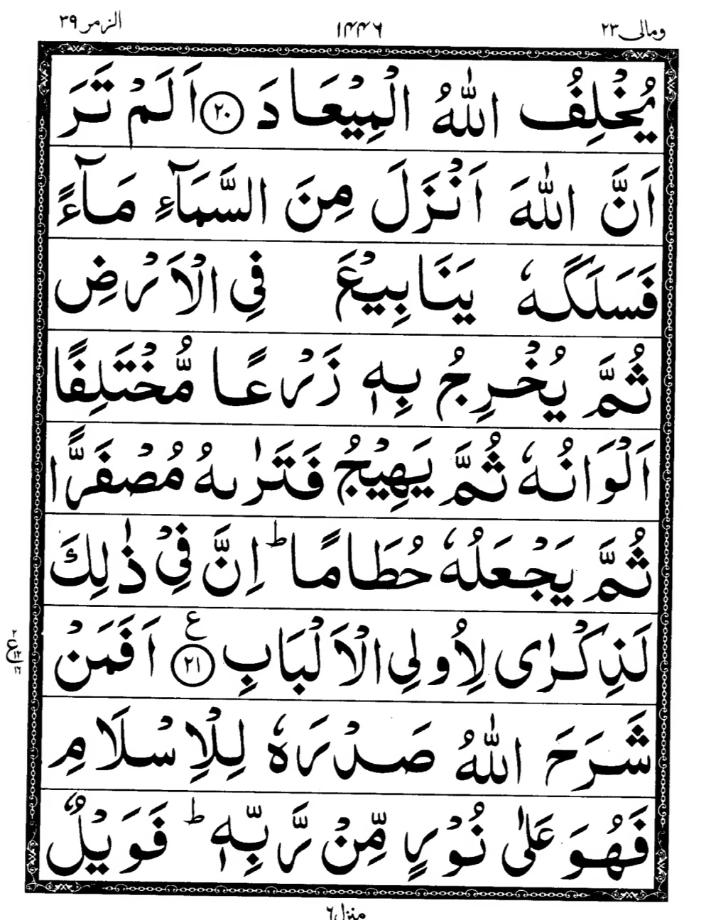 ومالی ٢٣ ١٤٤٦ الزمر ٣٩
يُخْلِفُ اللّٰهُ الْمِيْعَادَ ﴿٢٠﴾ اَلَمْ تَرَ
اَنَّ اللّٰهَ اَنْزَلَ مِنَ السَّمَآءِ مَآءً
فَسَلَكَهٗ يَنَابِيْعَ فِي الْاَرْضِ
ثُمَّ يُخْرِجُ بِهٖ زَرْعًا مُّخْتَلِفًا
اَلْوَانُهٗ ثُمَّ يَهِيْجُ فَتَرٰىهُ مُصْفَرًّا
ثُمَّ يَجْعَلُهٗ حُطَامًا ؕ اِنَّ فِيْ ذٰلِكَ
لَذِكْرٰى لِاُولِي الْاَلْبَابِ ﴿٢١﴾ ع اَفَمَنْ
شَرَحَ اللّٰهُ صَدْرَهٗ لِلْاِسْلَامِ
فَهُوَ عَلٰى نُوْرٍ مِّنْ رَّبِّهٖ ؕ فَوَيْلٌ
منزل ٦